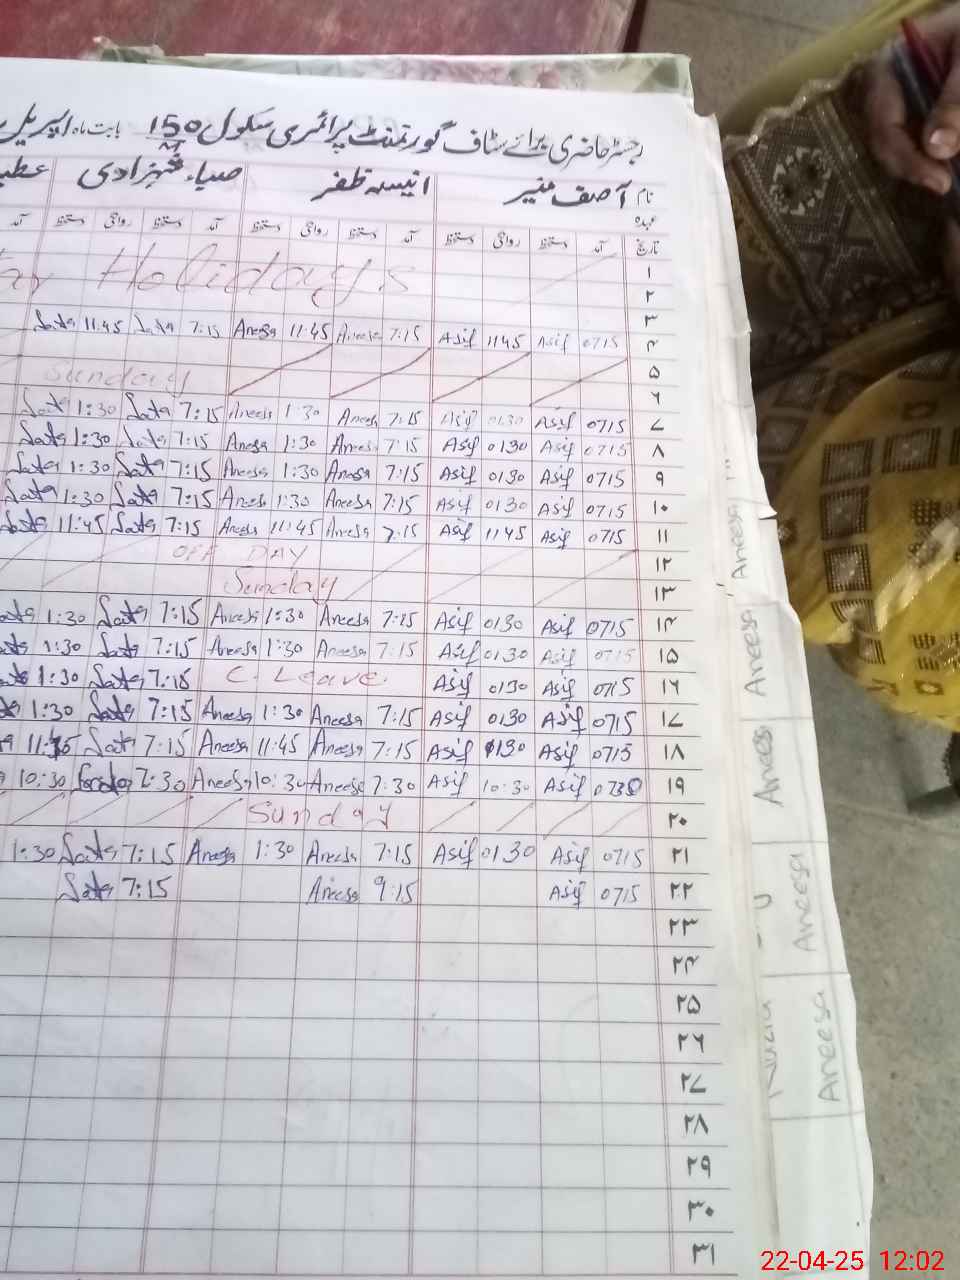 رجسٹر حاضری برائے سٹاف گورنمنٹ پرائمری سکول 150/M بابت ماہ اپریل
نام آصف منیر انیسہ ظفر صباء شہزادی
عہدہ
تاریخ آمد دستخط روانگی دستخط آمد دستخط روانگی دستخط آمد دستخط روانگی دستخط آمد
۱ Holidays
۲
۳
۴ 0715 Asif 1145 Asif 7:15 Aneesa 11:45 Aneesa 7:15 11:45
۵
۶ Sunday
۷ 0715 Asif 0130 Asif 7:15 Aneesa 1:30 Aneesa 7:15 1:30
۸ 0715 Asif 0130 Asif 7:15 Aneesa 1:30 Aneesa 7:15 1:30
۹ 0715 Asif 0130 Asif 7:15 Aneesa 1:30 Aneesa 7:15 1:30
۱۰ 0715 Asif 0130 Asif 7:15 Aneesa 1:30 Aneesa 7:15 1:30
۱۱ 0715 Asif 1145 Asif 7:15 Aneesa 11:45 Aneesa 7:15 11:45
۱۲ OFF DAY
۱۳ Sunday
۱۴ 0715 Asif 0130 Asif 7:15 Aneesa 1:30 Aneesa 7:15 1:30
۱۵ 0715 Asif 0130 Asif 7:15 Aneesa 1:30 Aneesa 7:15 1:30
۱۶ 0715 Asif 0130 Asif C. Leave 7:15 1:30
۱۷ 0715 Asif 0130 Asif 7:15 Aneesa 1:30 Aneesa 7:15 1:30
۱۸ 0715 Asif 0130 Asif 7:15 Aneesa 11:45 Aneesa 7:15 11:45
۱۹ 0730 Asif 10:30 Asif 7:30 Aneesa 10:30 Aneesa 7:30 10:30
۲۰ Sunday
۲۱ 0715 Asif 0130 Asif 7:15 Aneesa 1:30 Aneesa 7:15 1:30
۲۲ 0715 Asif 9:15 Aneesa 7:15
۲۳
۲۴
۲۵
۲۶
۲۷
۲۸
۲۹
۳۰
۳۱
Aneesa
Aneesa
Anees
Aneesa
Aneesa
22-04-25 12:02